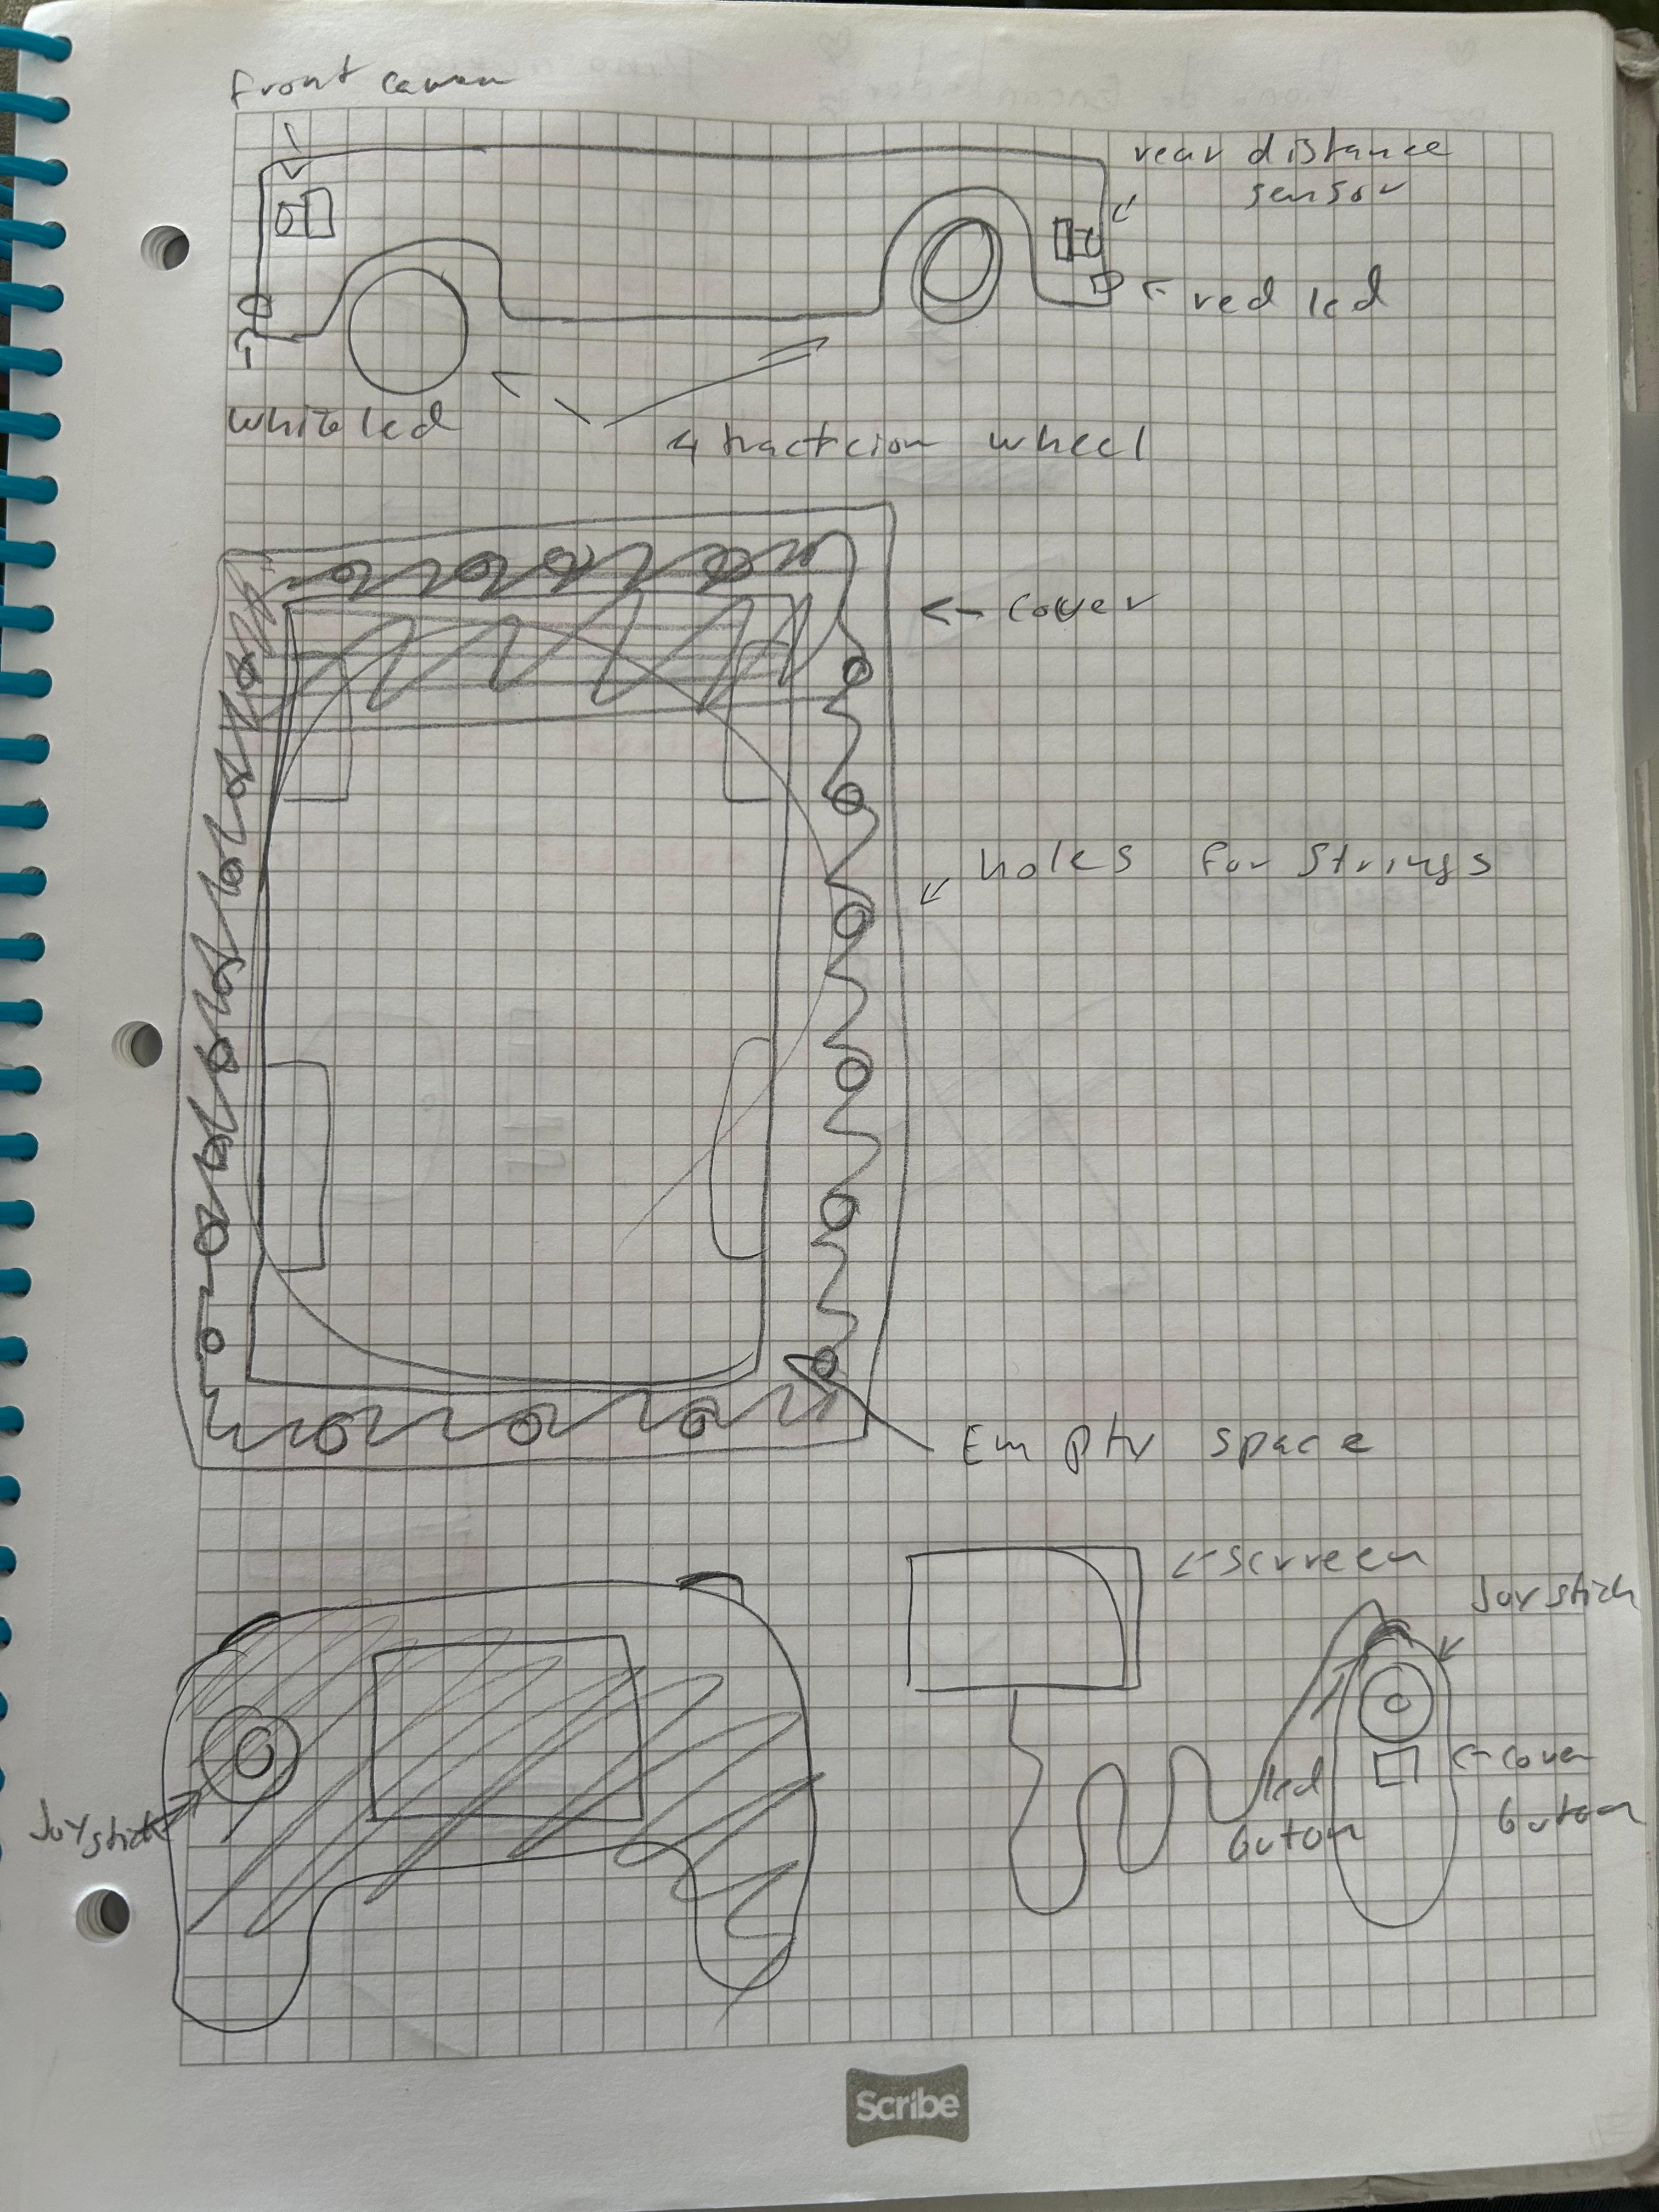 Front
rear distance
sensor
red led
white led
4 tractcion wheel
cover
holes for strings
Empty space
screen
Joystick
Joystick
led
buton
cover
buton
Scribe